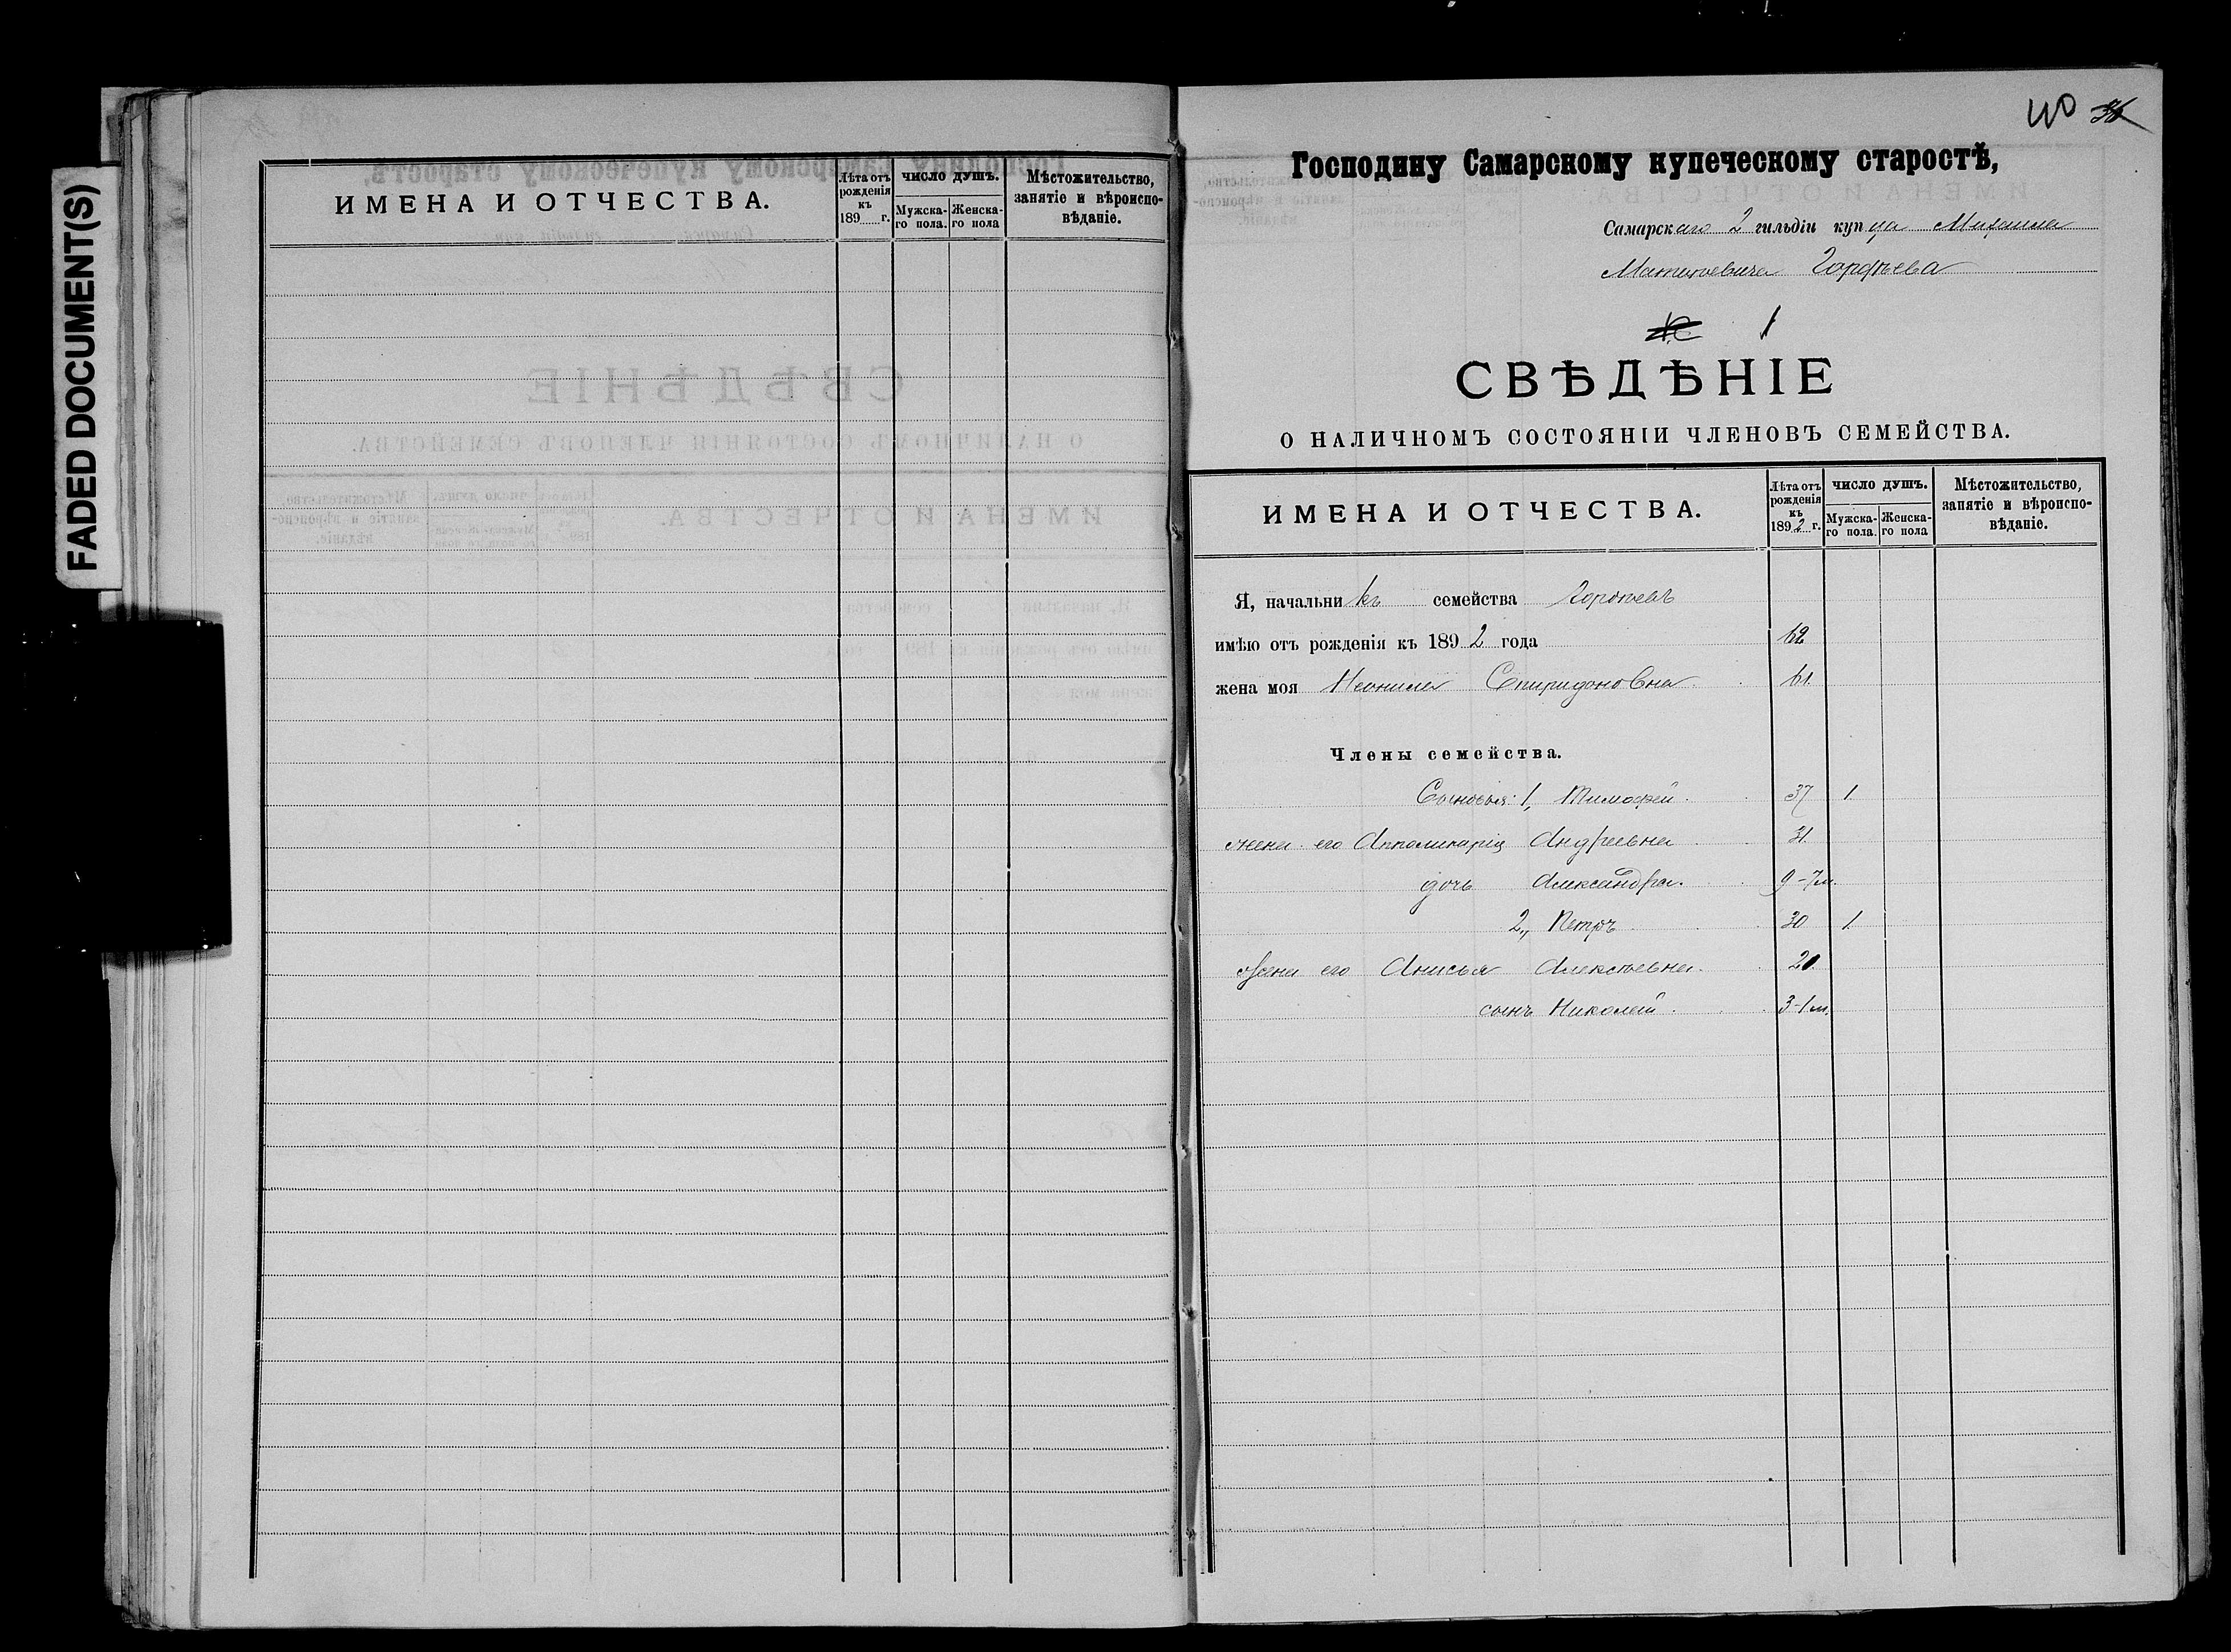 FADED DOCUMENT(S)
ИМЕНА И ОТЧЕСТВА.
Лѣта отъ рожденія къ 189 г.
ЧИСЛО ДУШЪ.
Мужска-го пола.
Женска-го пола
Мѣстожительство, занятіе и вѣроиспо-вѣданіе.
110 36
Господину Самарскому купеческому старостѣ,
Самарскаго 2 гильдіи купца Михаила
Матвѣевича Гордѣева
1
СВѢДѢНІЕ
О НАЛИЧНОМЪ СОСТОЯНІИ ЧЛЕНОВЪ СЕМЕЙСТВА.
ИМЕНА И ОТЧЕСТВА.
Лѣта отъ рожденія къ 1892 г.
ЧИСЛО ДУШЪ.
Мужска-го пола.
Женска-го пола
Мѣстожительство, занятіе и вѣроиспо-вѣданіе.
Я, начальникъ семейства Гордѣевъ
имѣю отъ рожденія къ 1892 года 62
жена моя Неонила Спиридоновна. 61.
Члены семейства.
Сыновья: 1, Тимофей. 37 1.
жена его Апполинарія Андреевна 31.
дочь Александра. 9-7м.
2,, Петръ 30 1.
жена его Анисья Алексѣевна. 20.
сынъ Николай. 3-1м.